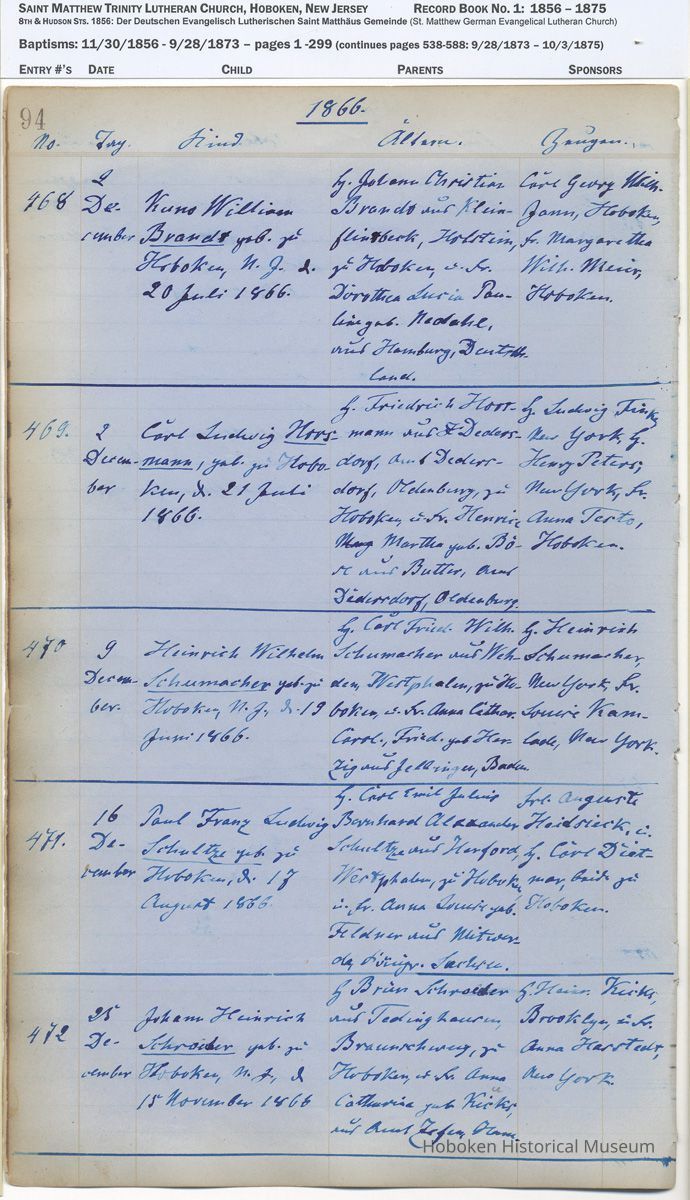 SAINT MATTHEW TRINITY LUTHERAN CHURCH, HOBOKEN, NEW JERSEY RECORD BOOK NO. 1: 1856 – 1875
8TH & HUDSON STS. 1856: Der Deutschen Evangelisch Lutherischen Saint Matthäus Gemeinde (St. Matthew German Evangelical Lutheran Church)
Baptisms: 11/30/1856 - 9/28/1873 – pages 1 -299 (continues pages 538-588: 9/28/1873 – 10/3/1875)
ENTRY #'S DATE CHILD PARENTS SPONSORS
94
1866.
No. Tag. Kind. Ältern. Zeugen.
468
2
De-
cember
Kuno William
Brandt geb. zu
Hoboken, N. J. d.
20 Juli 1866.
H. Johann Christian
Brandt aus Klein-
flintbeck, Holstein,
zu Hoboken, u. Fr.
Dorothea Lucia Pau-
line geb. Nedahl,
aus Hamburg, Deutsch-
land.
Carl Georg Wilh.
Hoboken,
Fr. Margaretha
Wilh. Meier,
Hoboken.
469.
2
Decem-
ber
Carl Ludwig Hoos-
mann, geb. zu Hobo-
ken, d. 21 Juli
1866.
H. Friedrich Hoos-
mann aus Deders-
dorf, Amt Deders-
dorf, Oldenburg, zu
Hoboken, u. Fr. Henric
Martha geb. Bö-
se aus Butter, Amt
Dedersdorf, Oldenburg.
H. Ludwig Fink,
New York, H.
Henry Peters,
New York, Fr.
Anna Testo,
Hoboken.
470
9
Decem-
ber.
Heinrich Wilhelm
Schumacher geb. zu
Hoboken, N. J., d. 19
Juni 1866.
H. Carl Fried. Wilh.
Schumacher aus Weh-
dem, Westphalen, zu Ho-
boken, u. Fr. Anna Cathar.
Carol., Fried. geb. Her-
zig aus Baden.
H. Heinrich
Schumacher,
New York, Fr.
Louise Kam-
lade, New York.
471.
16
De-
cember
Paul Franz Ludwig
Schultze geb. zu
Hoboken, d. 17
August 1866.
H. Carl Emil Julius
Bernhard Alexander
Schultze aus Herford,
Westphalen, zu Hoboken
u. Fr. Anna Louise geb.
Feldner aus Mitwei-
da, Königr. Sachsen.
Frl. Auguste
Heidsieck, u.
H. Carl Diet-
mar, beide zu
Hoboken.
472
25
De-
cember
Johann Heinrich
Schroeder geb. zu
Hoboken, N. J., d
15 November 1866
H Schroeder
aus Tedinghausen,
Braunschweig, zu
Hoboken, u Fr. Anna
Catharina geb Kicks,
aus Amt
H. Heinr. Kicks,
Brooklyn, u. Fr.
Anna Harstedt,
New York.
Hoboken Historical Museum